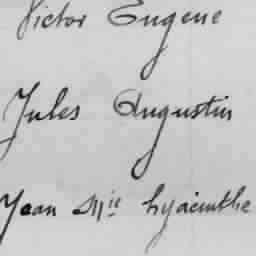 Victor Eugene
Jules Augustin
Jean Mie Hyacinthe